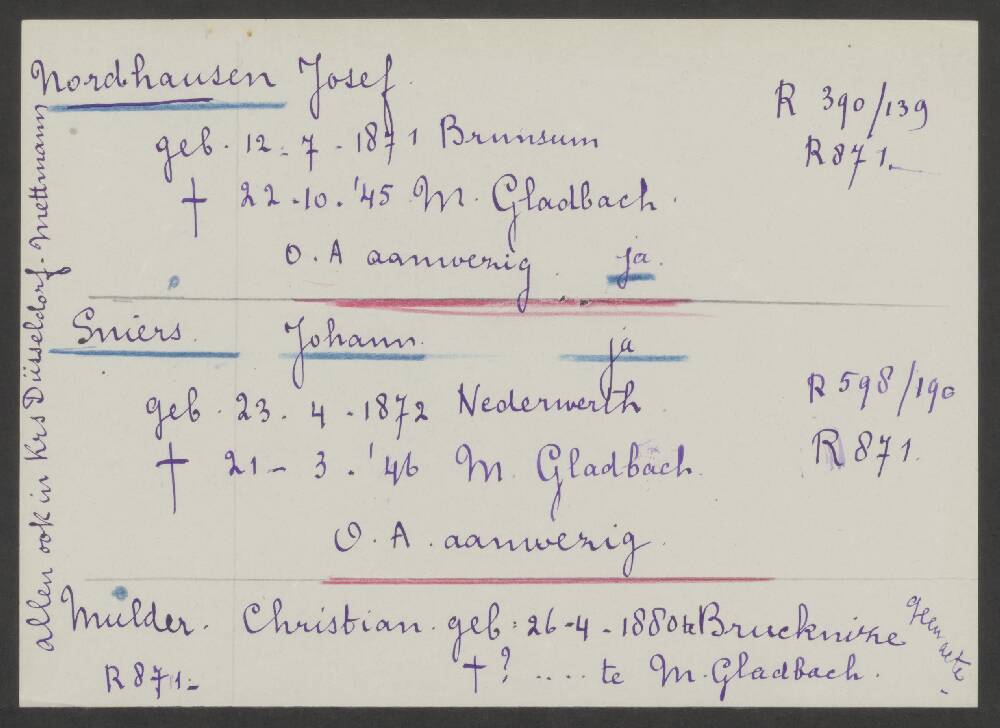 Nordhausen Josef.
R 390/139
geb. 12-7-1871 Brunsum
R 871.-
† 22-10.'45 M. Gladbach.
O.A aanwezig ja.
Sniers. Johann. ja
geb. 23.4-1872 Nederwerth
R 598/190
† 21-3.'46 M. Gladbach.
R 871.
O.A. aanwezig.
Mulder. Christian. geb: 26-4-1880 te Brucknitze geen acte.
R 871.- † ? .... te M. Gladbach.
allen ook in Krs Düsseldorf-Mettmann